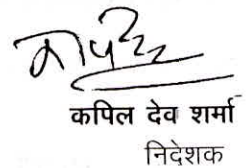 कपिल देव शर्मा
निदेशक